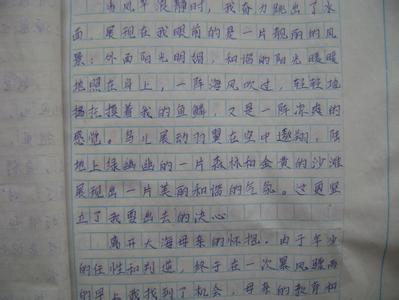 当风平浪静时，我奋力跳出了水
面，展现在我眼前的是一片靓丽的风
景：外面阳光明媚，和谐的阳光暖暖
地照在身上，一阵海风吹过，轻轻地
抚摸着我的鱼鳞，又是一阵凉爽的
感觉。鸟儿展动羽翼在空中遨翔，陆
地上绿幽幽的一片森林和金黄的沙滩
展现出一片美丽和谐的气氛。这更坚
立了我要出去的决心
离开大海母亲的怀抱。由于年少
的任性和判道，终于在一次暴风骤雨
的早上我找到了机会，母亲的教育和